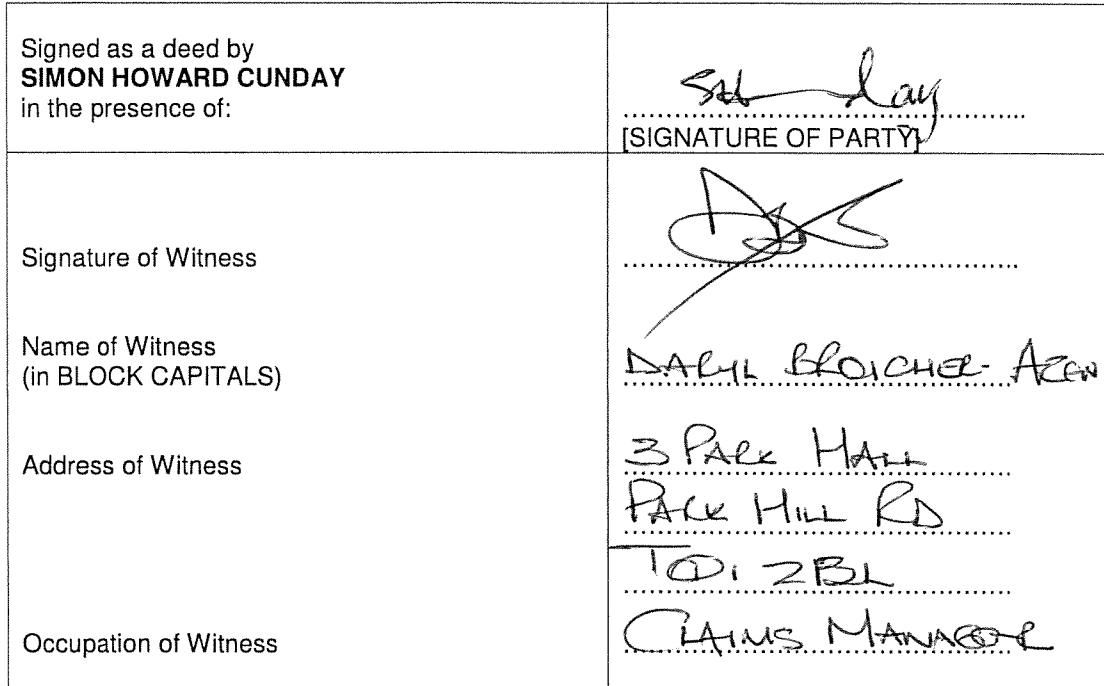 Signed as a deed by
SIMON HOWARD CUNDAY
in the presence of:
[SIGNATURE OF PARTY]
Signature of Witness
Name of Witness
(in BLOCK CAPITALS)
DARYL BROICHER-
Address of Witness
3 PARK HALL
PARK HILL RD
TQ1 2BL
Occupation of Witness
CLAIMS MANAGER